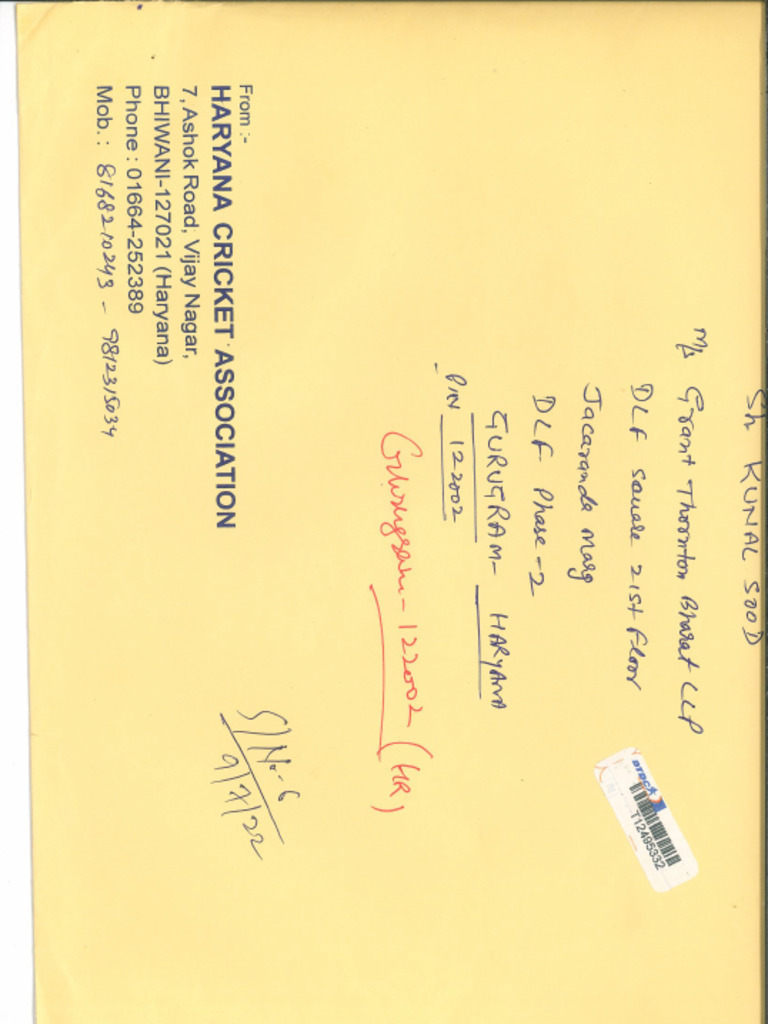 Sh KUNAL SOOD
M/s Grant Thornton Bharat LLP
DLF Square 21st Floor
Jacaranda Marg
DLF Phase-2
GURUGRAM- HARYANA
PIN 122002
Gurugram-122002 (HR)
From :-
HARYANA CRICKET ASSOCIATION
7, Ashok Road, Vijay Nagar,
BHIWANI-127021 (Haryana)
Phone : 01664-252389
Mob. : 8168210243 - 9812315034
S/No-6
9/7/22
DTDC
T12495332